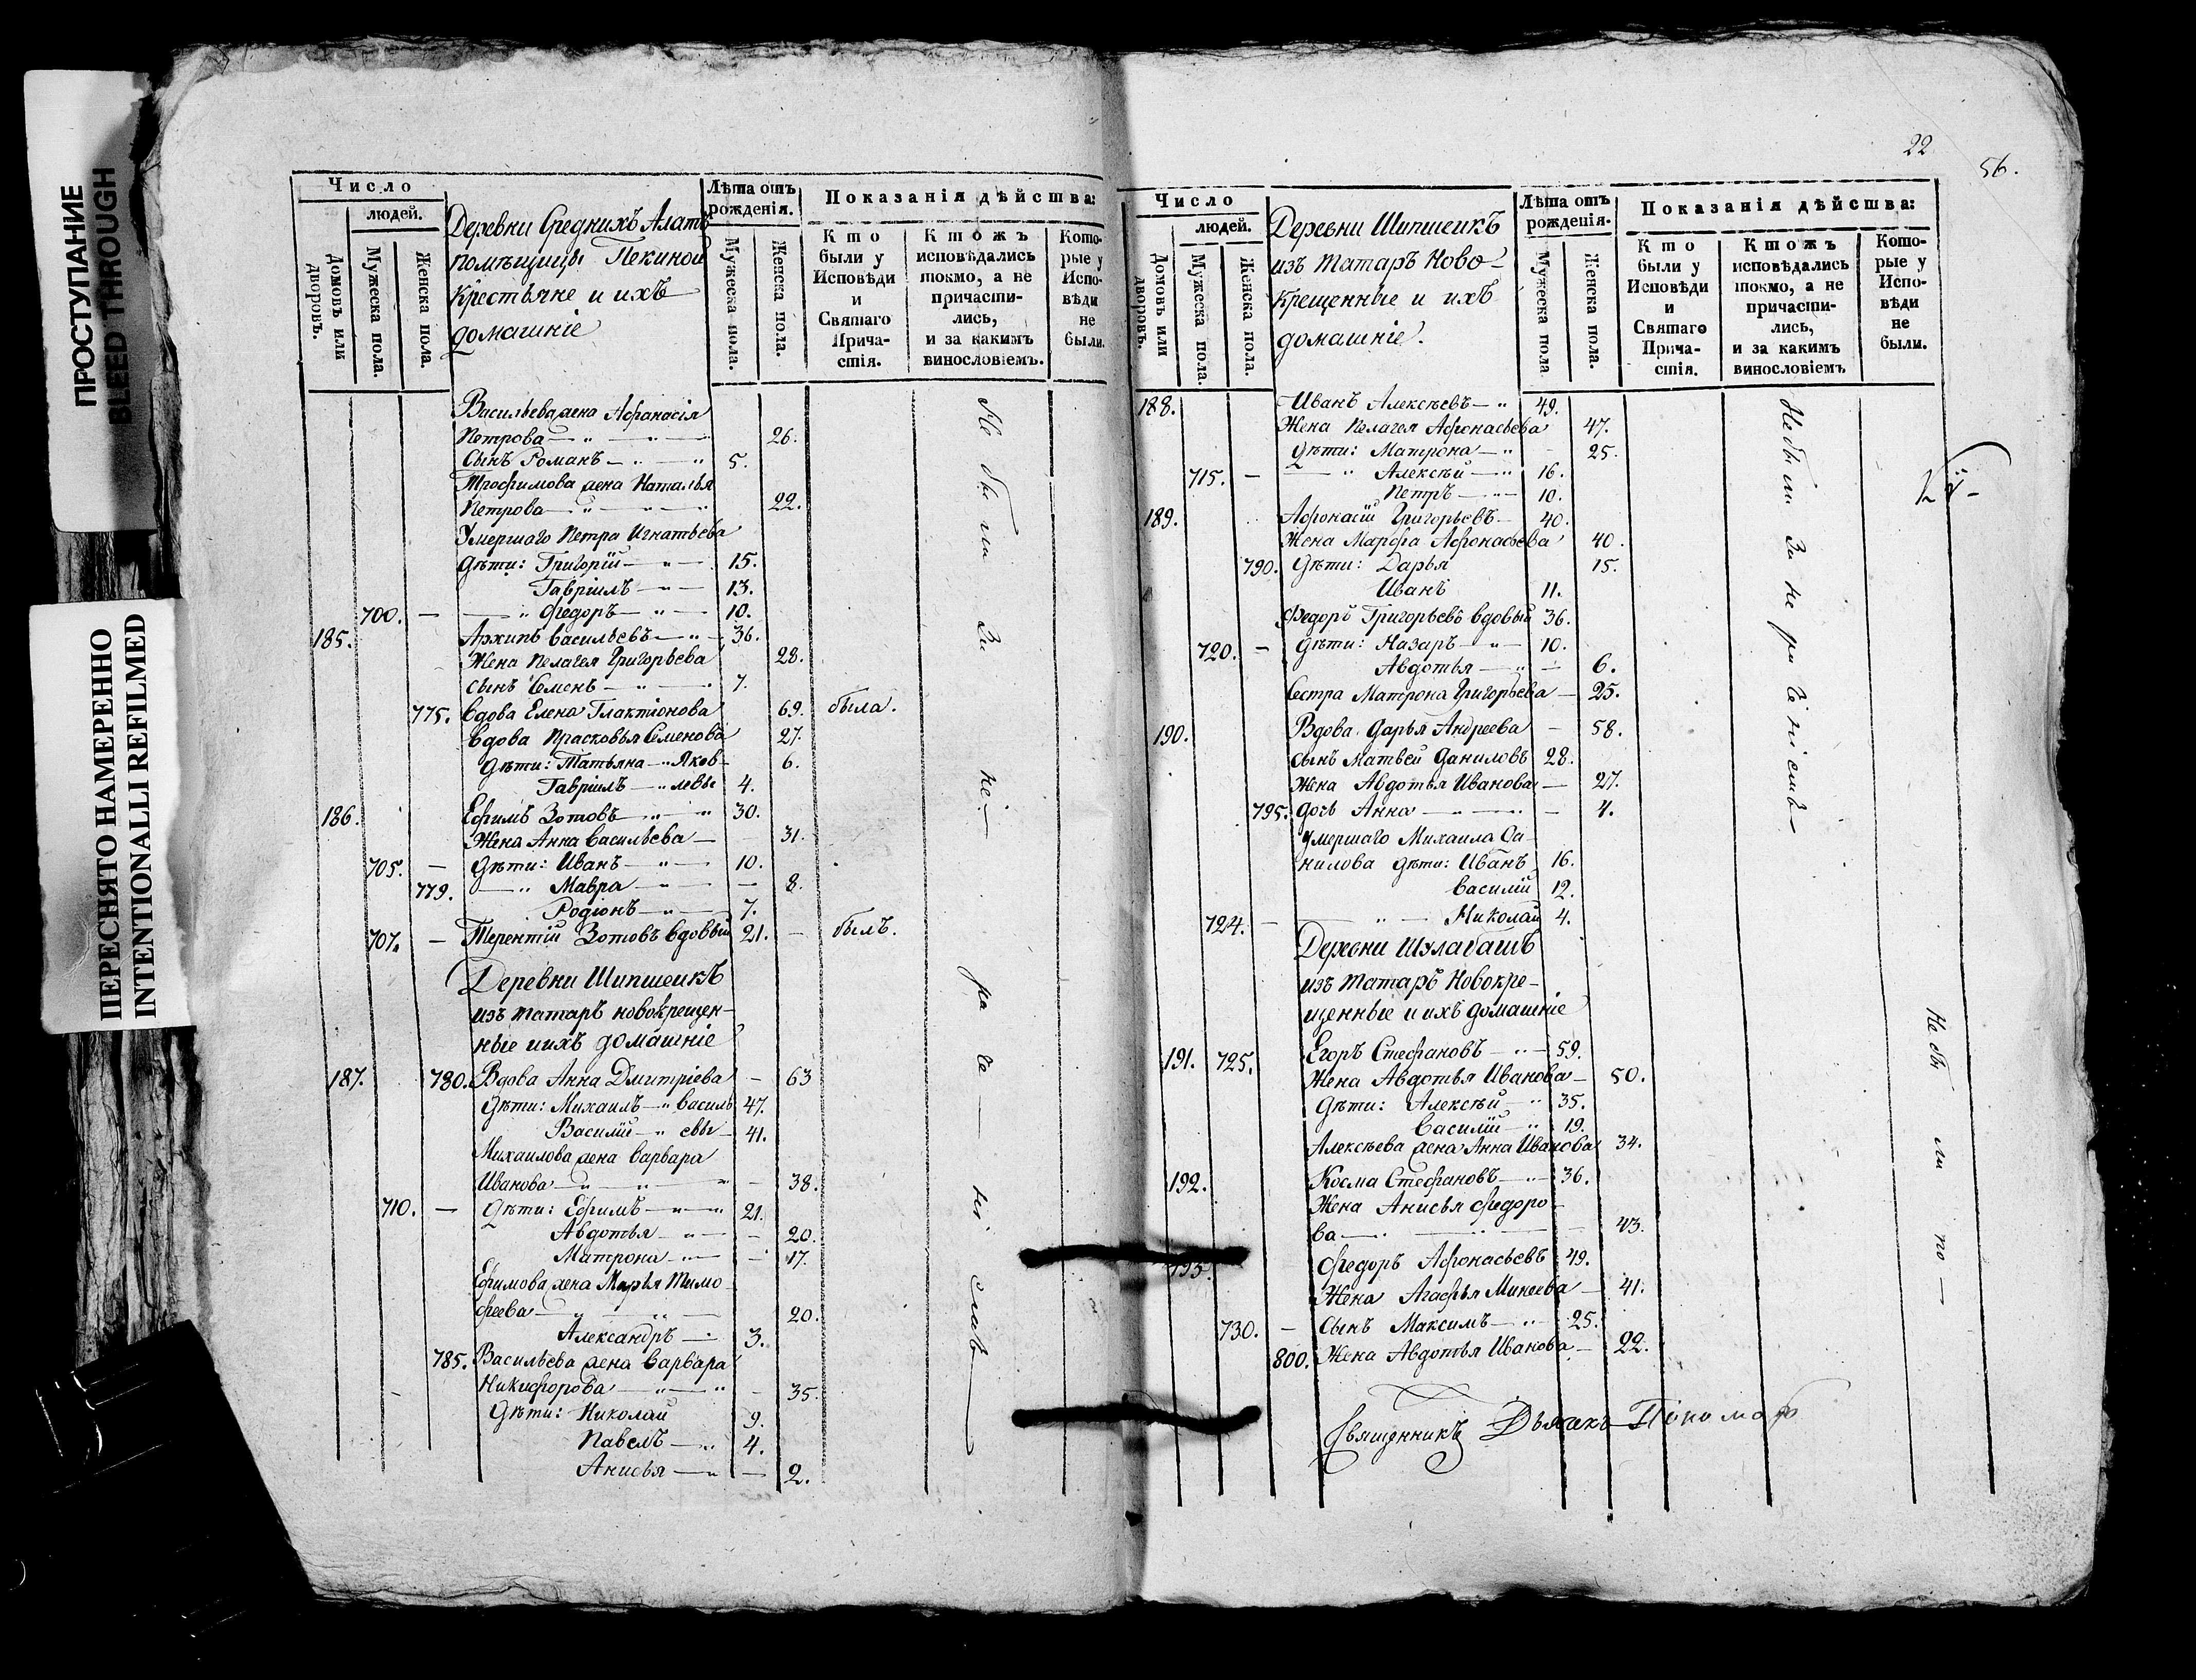 ПРОСТУПАНИЕ
BLEED THROUGH
ПЕРЕСНЯТО НАМЕРЕННО
INTENTIONALLI REFILMED
Число
людей.
Домовъ или дворовъ.
Мужеска пола.
Женска пола.
Деревни Среднихъ Алатъ
помѣщицы Пекиной
Крестьяне и ихъ
домашніе
Лѣта отъ рожденія.
Мужеска пола.
Женска пола.
Показанія дѣйства:
Кто были у Исповѣди и Святаго Причастія.
Ктожъ исповѣдались токмо, а не причастились, и за какимъ винословіемъ.
Которые у Исповѣди не были.
Васильева жена Афанасія
Петрова 26.
Сынъ Романъ 5.
Трофимова жена Наталья
Петрова 22.
Умершаго Петра Игнатьева
дѣти: Григорій 15.
Гавріилъ 13.
700. — Федоръ 10.
185. Архипъ Васильевъ 36.
Жена Пелагея Григорьева 28.
сынъ Семенъ 7.
775. Вдова Елена Глактіонова 69. была.
Вдова Прасковья Семенова 27.
дѣти: Татьяна Яков- 6.
Гавріилъ левы 4.
186. Ефимъ Зотовъ 30.
Жена Анна Васильева 31.
705. — дѣти: Иванъ 10.
779. Мавра — 8.
Родіонъ 7.
707. — Терентій Зотовъ вдовый 21. — былъ.
Деревни Шипшеикъ
изъ татаръ новокрещен-
ные и ихъ домашніе
187. 780. Вдова Анна Дмитріева — 63
дѣти: Михаилъ Василь 47.
Василій евы 41.
Михаилова жена Варвара
Иванова — 38.
710. — дѣти: Ефимъ 21.
Авдотья — 20.
Матрона — 17.
Ефимова жена Марья Тимо
феева 20.
Александръ 3.
785. Васильева жена Варвара
Никифорова — 35.
дѣти: Николай 9.
Павелъ 4.
Анисья — 2.
22
56.
Число
людей.
Домовъ или дворовъ.
Мужеска пола.
Женска пола.
Деревни Шипшеикъ
изъ татаръ Ново-
крещенные и ихъ
домашніе.
Лѣта отъ рожденія.
Мужеска пола
Женска пола.
Показанія дѣйства:
Кто были у Исповѣди и Святаго Причастія.
Ктожъ исповѣдались токмо, а не причастились, и за какимъ винословіемъ
Которые у Исповѣди не были.
188. Иванъ Алексѣевъ 49.
Жена Пелагея Афонасьева 47.
дѣти: Матрона 25.
715. — Алексѣй 16.
Петръ 10.
189. Афонасій Григорьевъ 40.
Жена Марфа Афонасьева 40.
790. дѣти: Дарья 15.
Иванъ 11.
Федоръ Григорьевъ вдовый 36.
720. — дѣти: Назаръ 10.
Авдотья — 6.
Сестра Матрона Григорьева — 25.
190. Вдова Дарья Андреева — 58.
сынъ Матвей Даниловъ 28.
Жена Авдотья Иванова — 27.
795. дочь Анна — 4.
умершаго Михаила Да-
нилова дѣти: Иванъ 16.
Василій 12.
724. — Николай 4.
Деревни Шулабашъ
изъ татаръ Новокре-
щенные и ихъ домашніе
191. 725. Егоръ Стефановъ 59.
Жена Авдотья Иванова — 50.
дѣти: Алексѣй 35.
Василій 19.
Алексѣева жена Анна Иванова 34.
192. Косма Стефановъ 36.
Жена Анисья Федоро-
ва — 43.
193. Федоръ Афонасьевъ 49.
Жена Агафья Минеева — 41.
730. — сынъ Максимъ 25.
800. Жена Авдотья Иванова — 22.
Священникъ Дьячекъ Пономарь